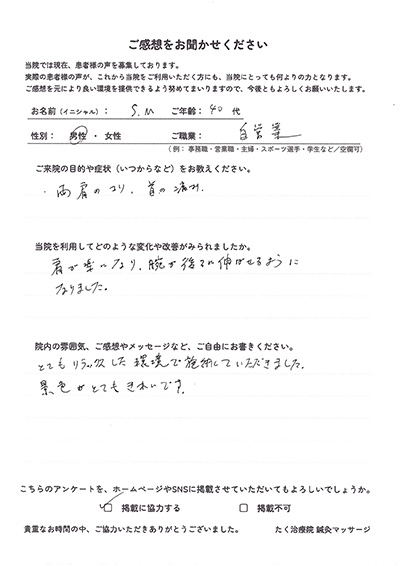 ご感想をお聞かせください
当院では現在、患者様の声を募集しております。
実際の患者様の声が、これから当院をご利用いただく方にも、当院にとっても何よりの力となります。
ご感想を元により良い環境を提供できるよう努めてまいりますので、今後ともよろしくお願いいたします。
お名前（イニシャル）： S.M ご年齢： 40 代
性別： 男性 ・ 女性 ご職業： 自営業
（例： 事務職・営業職・主婦・スポーツ選手・学生など／空欄可）
ご来院の目的や症状（いつからなど）をお教えください。
・両肩のコリ、首の痛み
当院を利用してどのような変化や改善がみられましたか。
肩が楽になり、腕が後ろに伸ばせるように
なりました。
院内の雰囲気、ご感想やメッセージなど、ご自由にお書きください。
とてもリラックスした環境で施術していただきました。
景色がとてもきれいです。
こちらのアンケートを、ホームページやSNSに掲載させていただいてもよろしいでしょうか。
掲載に協力する 掲載不可
貴重なお時間の中、ご協力いただきありがとうございました。 たく治療院 鍼灸マッサージ